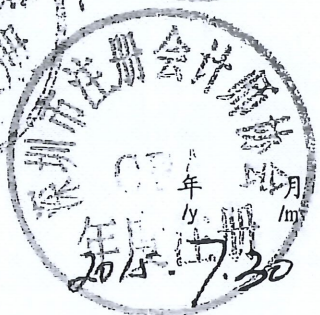 深圳市注册会计师协会
年 月
/y /m
年度注册
2015.7.30